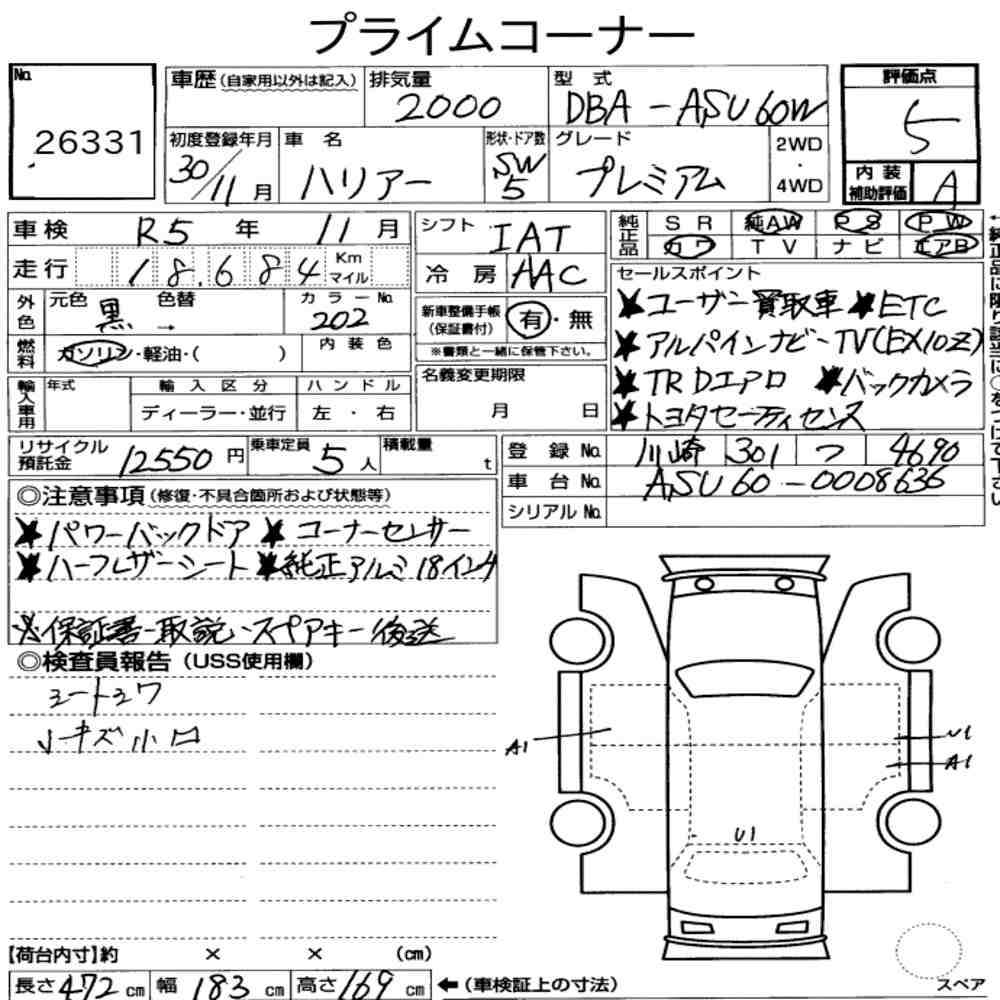 プライムコーナー
No. 26331
車歴 (自家用以外は記入)
排気量 2000
型式 DBA-ASU60W
評価点 5
初度登録年月 30/11月
車名 ハリアー
形状・ドア数 SW 5
グレード プレミアム
2WD・4WD
内装補助評価 A
車検 R5年 11月
シフト IAT
純正品 SR 純AW PS PW
カワ TV ナビ エアB
走行 18,684 Km マイル
冷房 AAC
セールスポイント
★ユーザー買取車 ★ETC
★アルパインナビ-TV(EX10Z)
★TRDエアロ ★バックカメラ
★トヨタセーフティセンス
外色 元色 黒 色替 → カラーNo. 202
新車整備手帳(保証書付) 有・無
※書類と一緒に保管下さい。
燃料 ガソリン・軽油・( ) 内装色
名義変更期限 月 日
輸入車用 年式 輸入区分 ハンドル
ディーラー・並行 左・右
リサイクル預託金 12550円 乗車定員 5人 積載量 t
登録No. 川崎 301 つ 4690
車台No. ASU60-0008636
シリアルNo.
◎注意事項 (修復・不具合箇所および状態等)
★パワーバックドア ★コーナーセンサー
★ハーフレザーシート ★純正アルミ18インチ
※保証書-取説・スペアキー後送
◎検査員報告 (USS使用欄)
シートシワ
小キズ小凹
A1
U1
A1
U1
【荷台内寸】約 × × (cm)
長さ472cm 幅183cm 高さ169cm ←(車検証上の寸法)
スペア